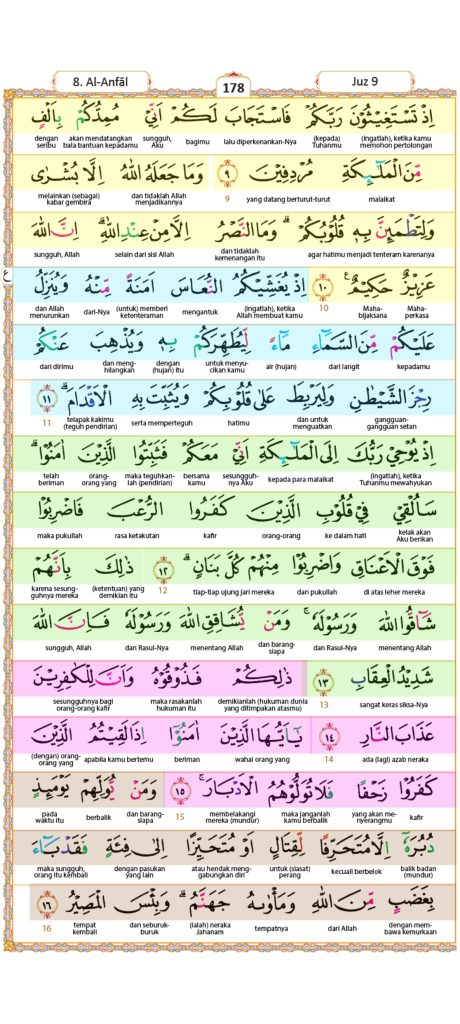 8. Al-Anfāl
178
Juz 9
اِذْ تَسْتَغِيْثُوْنَ رَبَّكُمْ فَاسْتَجَابَ لَكُمْ اَنِّيْ مُمِدُّكُمْ بِاَلْفٍ
(ingatlah), ketika kamu memohon pertolongan (kepada) Tuhanmu lalu diperkenankan-Nya bagimu sungguh, Aku akan mendatangkan bala bantuan kepadamu dengan seribu
مِّنَ الْمَلٰۤىِٕكَةِ مُرْدِفِيْنَ ۹ وَمَا جَعَلَهُ اللّٰهُ اِلَّا بُشْرٰى
malaikat yang datang berturut-turut 9 dan tidaklah Allah menjadikannya melainkan (sebagai) kabar gembira
وَلِتَطْمَىِٕنَّ بِهٖ قُلُوْبُكُمْۗ وَمَا النَّصْرُ اِلَّا مِنْ عِنْدِ اللّٰهِۗ اِنَّ اللّٰهَ
agar hatimu menjadi tenteram karenanya dan tidaklah kemenangan itu selain dari sisi Allah sungguh, Allah
ع
عَزِيْزٌ حَكِيْمٌ ࣖ ۱۰ اِذْ يُغَشِّيْكُمُ النُّعَاسَ اَمَنَةً مِّنْهُ وَيُنَزِّلُ
Maha-perkasa Maha-bijaksana 10 (ingatlah), ketika Allah membuat kamu mengantuk (untuk) memberi ketenteraman dari-Nya dan Allah menurunkan
عَلَيْكُمْ مِّنَ السَّمَاۤءِ مَاۤءً لِّيُطَهِّرَكُمْ بِهٖ وَيُذْهِبَ عَنْكُمْ
kepadamu dari langit air (hujan) untuk menyu-cikan kamu dengan (hujan) itu dan meng-hilangkan dari dirimu
رِجْزَ الشَّيْطٰنِ وَلِيَرْبِطَ عَلٰى قُلُوْبِكُمْ وَيُثَبِّتَ بِهِ الْاَقْدَامَۗ ۱۱
gangguan-gangguan setan dan untuk menguatkan hatimu serta memperteguh telapak kakimu (teguh pendirian) 11
اِذْ يُوْحِيْ رَبُّكَ اِلَى الْمَلٰۤىِٕكَةِ اَنِّيْ مَعَكُمْ فَثَبِّتُوا الَّذِيْنَ اٰمَنُوْاۗ
(ingatlah), ketika Tuhanmu mewahyukan kepada para malaikat sesungguh-nya Aku bersama kamu maka teguhkan-lah (pendirian) orang-orang yang telah beriman
سَاُلْقِيْ فِيْ قُلُوْبِ الَّذِيْنَ كَفَرُوا الرُّعْبَ فَاضْرِبُوْا
kelak akan Aku berikan ke dalam hati orang-orang kafir rasa ketakutan maka pukullah
فَوْقَ الْاَعْنَاقِ وَاضْرِبُوْا مِنْهُمْ كُلَّ بَنَانٍۗ ۱۲ ذٰلِكَ بِاَنَّهُمْ
di atas leher mereka dan pukullah tiap-tiap ujung jari mereka 12 (ketentuan) yang demikian itu karena sesung-guhnya mereka
شَاۤقُّوا اللّٰهَ وَرَسُوْلَهٗۚ وَمَنْ يُّشَاقِقِ اللّٰهَ وَرَسُوْلَهٗ فَاِنَّ اللّٰهَ
menentang Allah dan Rasul-Nya dan barang-siapa menentang Allah dan Rasul-Nya sungguh, Allah
شَدِيْدُ الْعِقَابِ ۱۳ ذٰلِكُمْ فَذُوْقُوْهُ وَاَنَّ لِلْكٰفِرِيْنَ
sangat keras siksa-Nya 13 demikianlah (hukuman dunia yang ditimpakan atasmu) maka rasakanlah hukuman itu sesungguhnya bagi orang-orang kafir
عَذَابَ النَّارِ ۱٤ يٰٓاَيُّهَا الَّذِيْنَ اٰمَنُوْٓا اِذَا لَقِيْتُمُ الَّذِيْنَ
ada (lagi) azab neraka 14 wahai orang yang beriman apabila kamu bertemu (dengan) orang-orang yang
كَفَرُوْا زَحْفًا فَلَا تُوَلُّوْهُمُ الْاَدْبَارَۚ ۱۵ وَمَنْ يُّوَلِّهِمْ يَوْمَىِٕذٍ
kafir yang akan me-nyerangmu maka janganlah kamu berbalik membelakangi mereka (mundur) 15 dan barang-siapa berbalik pada waktu itu
دُبُرَهٗٓ اِلَّا مُتَحَرِّفًا لِّقِتَالٍ اَوْ مُتَحَيِّزًا اِلٰى فِئَةٍ فَقَدْ بَاۤءَ
balik badan (mundur) kecuali berbelok untuk (siasat) perang atau hendak meng-gabungkan diri dengan pasukan yang lain maka sungguh, orang itu kembali
بِغَضَبٍ مِّنَ اللّٰهِ وَمَأْوٰىهُ جَهَنَّمُۗ وَبِئْسَ الْمَصِيْرُ ۱٦
dengan mem-bawa kemurkaan dari Allah tempatnya (ialah) neraka Jahanam dan seburuk-buruk tempat kembali 16